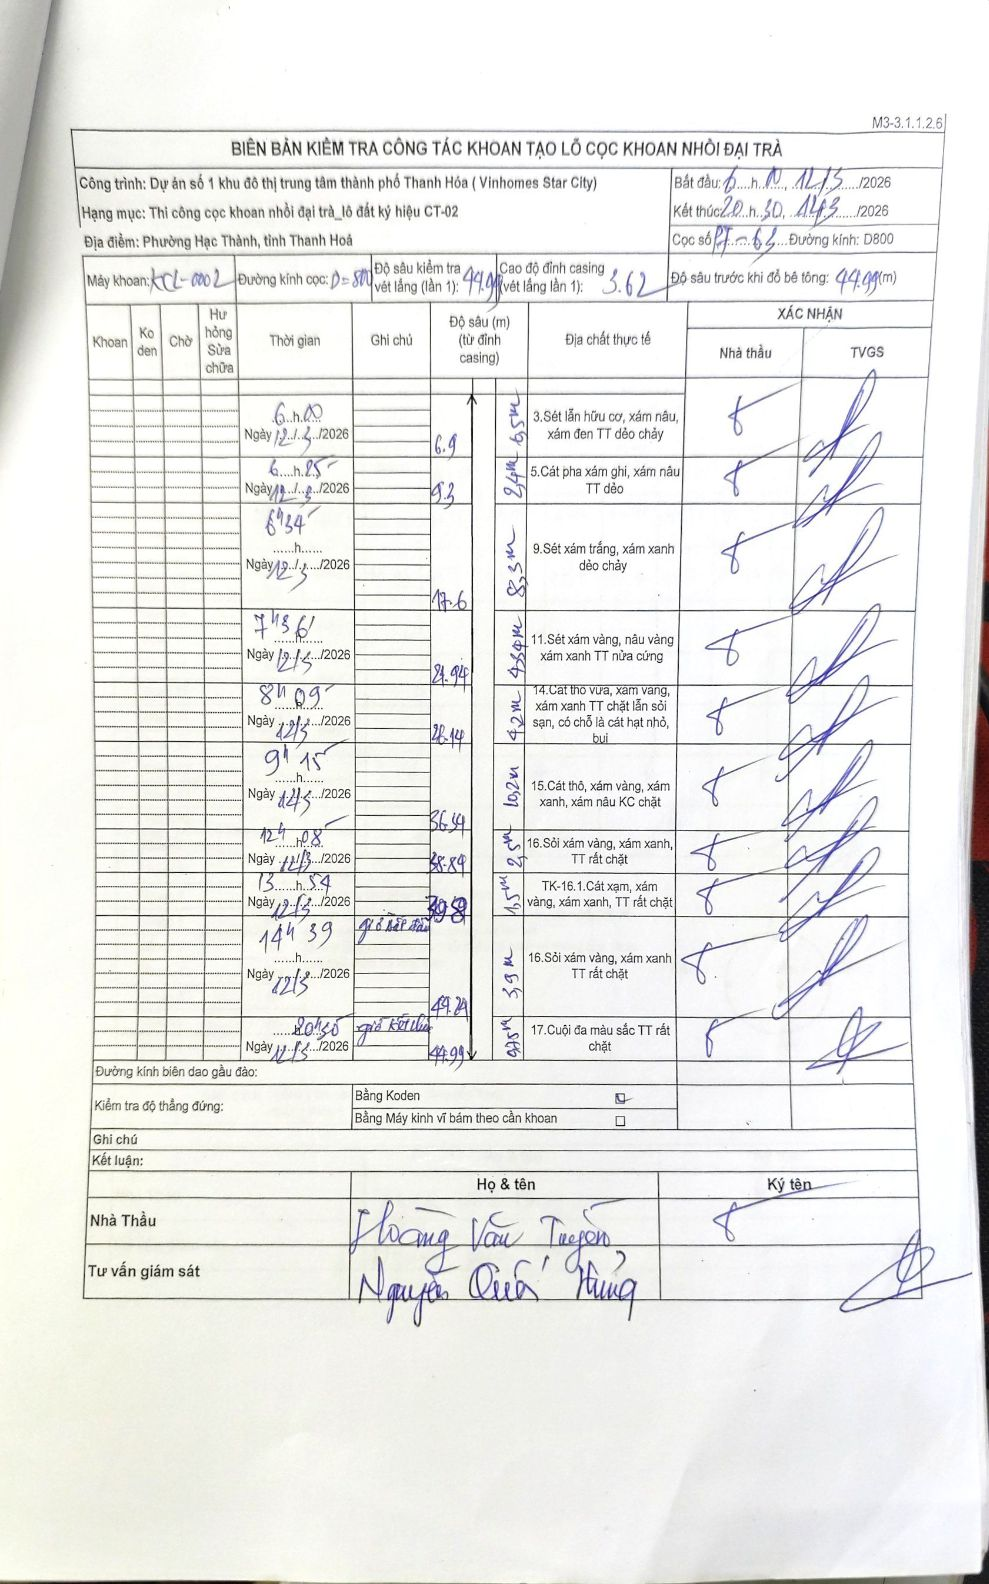 M3-3.1.1.2.6
BIÊN BẢN KIỂM TRA CÔNG TÁC KHOAN TẠO LỖ CỌC KHOAN NHỒI ĐẠI TRÀ
Công trình: Dự án số 1 khu đô thị trung tâm thành phố Thanh Hóa ( Vinhomes Star City)
Bắt đầu: 6....h.00, 12/3....../2026
Hạng mục: Thi công cọc khoan nhồi đại trà_lô đất ký hiệu CT-02
Kết thúc: 20..h.30, ....../2026
Địa điểm: Phường Hạc Thành, tỉnh Thanh Hoá
Cọc số PT-63...Đường kính: D800
Máy khoan: KCL-0002 Đường kính cọc: D=800 Độ sâu kiểm tra vét lắng (lần 1): 44.99 Cao độ đỉnh casing (vét lắng lần 1): 3.62 Độ sâu trước khi đổ bê tông: 44.99(m)
Khoan Ko den Chờ Hư hỏng Sửa chữa Thời gian Ghi chú Độ sâu (m) (từ đỉnh casing) Địa chất thực tế XÁC NHẬN
Nhà thầu TVGS
6..h.00
Ngày 12../.3.../2026
6.9
6,5m
3.Sét lẫn hữu cơ, xám nâu, xám đen TT dẻo chảy
6....h.25
Ngày 12../..3.../2026
9.3
2,4m
5.Cát pha xám ghi, xám nâu TT dẻo
6h34
......h......
Ngày 12../.3.../2026
17.6
8,3m
9.Sét xám trắng, xám xanh dẻo chảy
7h36
......h......
Ngày 12/3..../2026
21.94
4,34m
11.Sét xám vàng, nâu vàng xám xanh TT nửa cứng
8h09
Ngày 12/3.../2026
26.14
4,2m
14.Cát thô vừa, xám vàng, xám xanh TT chặt lẫn sỏi sạn, có chỗ là cát hạt nhỏ, bụi
9h15
......h......
Ngày 12/3..../2026
36.34
10,2m
15.Cát thô, xám vàng, xám xanh, xám nâu KC chặt
12h08
Ngày 12/3.../2026
38.84
2,5m
16.Sỏi xám vàng, xám xanh, TT rất chặt
13......h.54
Ngày 12/3..../2026
1,5m
TK-16.1.Cát xạm, xám vàng, xám xanh, TT rất chặt
14h39
......h......
Ngày 12/3..../2026
giờ bắt đầu
44.24
3,9m
16.Sỏi xám vàng, xám xanh TT rất chặt
20h30
Ngày 12/3..../2026
giờ kết thúc
44.99
0,75m
17.Cuội đa màu sắc TT rất chặt
Đường kính biên dao gầu đào:
Kiểm tra độ thẳng đứng:
Bằng Koden
Bằng Máy kinh vĩ bám theo cần khoan
Ghi chú
Kết luận:
Họ & tên Ký tên
Nhà Thầu Hoàng Văn Tuyến
Tư vấn giám sát Nguyễn Quế Hưng